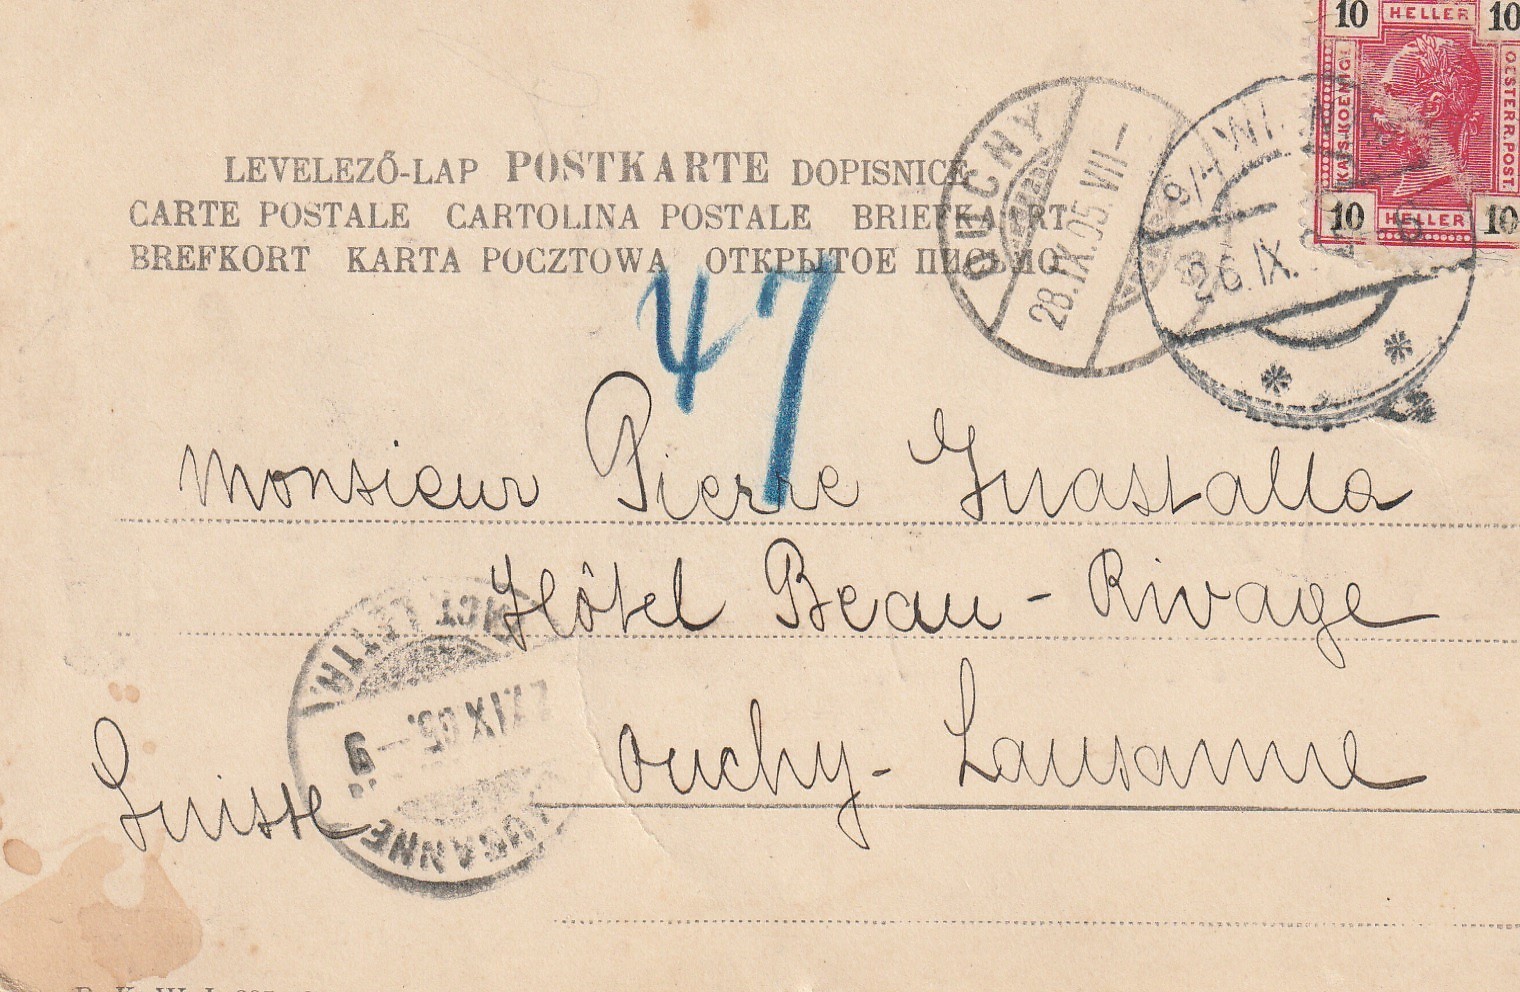 10 HELLER 10
KAIS. KOENIGL.
OESTERR. POST.
10 HELLER 10
LEVELEZŐ-LAP POSTKARTE DOPISNICE
CARTE POSTALE CARTOLINA POSTALE BRIEFKAART
BREFKORT KARTA POCZTOWA ОТКРЫТОЕ ПИСЬМО
OUCHY
28.IX.05.VII–
9/4 WI
26.IX.
47
Monsieur Pierre Guastalla
Hôtel Beau-Rivage
Ouchy-Lausanne
Suisse
LAUSANNE
27.IX.05.–9